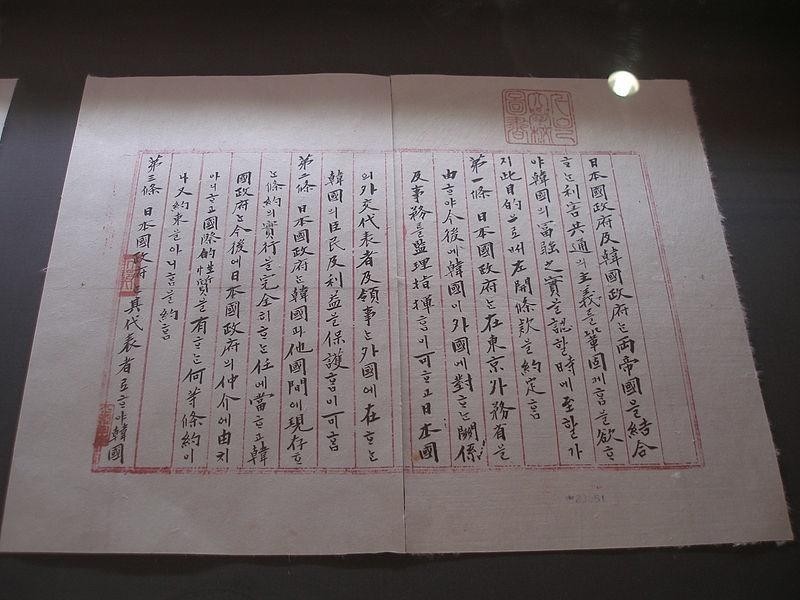 日本國政府及韓國政府는両帝國을結合
ᄒᆞ는利害共通의主義를鞏固케ᄒᆞᆷ을欲ᄒᆞ
야韓國의富强之實을認할時에至할가
지此目的으로ᄡᅥ左開條款을約定ᄒᆞᆷ
第一條 日本國政府는在東京外務省을
由ᄒᆞ야今後에韓國이外國에對ᄒᆞ는關係
及事務를監理指揮ᄒᆞᆷ이可ᄒᆞ고日本國
의外交代表者及領事는外國에在ᄒᆞ는
韓國의臣民及利益을保護ᄒᆞᆷ이可ᄒᆞᆷ
第二條 日本國政府는韓國과他國間에現存ᄒᆞ
는條約의實行을完全히ᄒᆞ는任에當ᄒᆞ고韓
國政府는今後에日本國政府의仲介에由치
아니ᄒᆞ고國際的性質을有ᄒᆞ는何等條約이
나又約束을아니ᄒᆞᆷ을約ᄒᆞᆷ
第三條 日本國政府는其代表者로ᄒᆞ야韓國